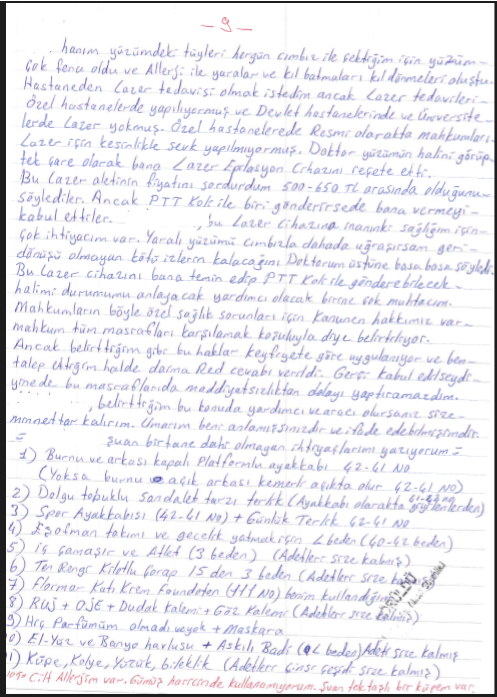 - 9 -
hanım yüzümdeki tüyleri hergün cımbız ile çektiğim için yüzüm-
çok fena oldu ve Allerji ile yaralar ve kıl batmaları kıl dönmeleri oluştu.
Hastaneden Lazer tedavisi olmak istedim ancak Lazer tedavileri-
Özel hastanelerde yapılıyormuş ve Devlet hastanelerinde ve Üniversite-
lerde Lazer yokmuş. Özel hastanelerede Resmi olarakta mahkumları-
Lazer için kesinlikle sevk yapılmıyormuş. Doktor yüzümün halini görüp
tek çare olarak bana Lazer Epilasyon Cihazını reçete etti.
Bu Lazer aletinin fiyatını sordurdum 500-650 TL arasında olduğunu-
söylediler. Ancak PTT Koli ile biri gönderirsede bana vermeyi-
kabul ettiler. , bu Lazer Cihazına inanınki sağlığım için-
çok ihtiyacım var. Yaralı yüzümü cımbızla dahada uğraşırsam geri-
dönüşü olmayan kötü izlerin kalacağını Doktorum üstüne basa basa söyledi.
Bu Lazer cihazını bana temin edip PTT Koli ile gönderebilecek-
halimi durumumu anlayacak yardımcı olacak birine çok muhtacım.
Mahkumların böyle özel sağlık sorunları için Kanunen hakkımız var-
mahkum tüm masrafları karşılamak koşuluyla diye belirtiliyor.
Ancak belirttiğim gibi bu haklar keyfiyete göre uygulanıyor ve ben-
talep ettiğim halde daima Red cevabı verildi. Gerçi kabul edilseydi-
yinede bu masraflarıda maddiyatsızlıktan dolayı yaptıramazdım.
, belirttiğim bu konuda yardımcı ve aracı olursanız size-
minnettar kalırım. Umarım beni anlamışsınızdır ve ifade edebilmişimdir.
Şuan birtane dahi olmayan ihtiyaçlarımı yazıyorum =
1) Burnu ve arkası kapalı Platformlu ayakkabı 42-41 No
(Yoksa burnu açık arkası kemerli açıkta olur 42-41 NO)
2) Dolgu topuklu Sandalet tarzı terlik (Ayakkabı olarakta giyilenlerden)
3) Spor Ayakkabısı (42-41 No) + Günlük Terlik 42-41 No
4) Eşofman takımı ve gecelik yatmak için L beden (40-42 beden)
5) iç çamaşır ve Atlet (3 beden) (Adetler size kalmış)
6) Ten Rengi Kilotlu Çorap 15 den 3 beden (Adetler size kalmış)
7) Flormar Katı Krem Foundaten (111 No) benim kullandığım
8) RUJ + OJE + Dudak Kalemi + Göz Kalemi (Adetler size kalmış)
9) Hiç Parfümüm olmadı veyok + Maskara
10) El-Yüz ve Banyo havlusu + Askılı Badi (L beden) Adeti size kalmış
11) Küpe, Kolye, Yüzük, bileklik (Adetler Çinsi çeşidi size kalmış)
NOT= Cilt Allerjim var. Gümüş haricinde kullanamıyorum. Şuan tek taşlı bir küpem var.